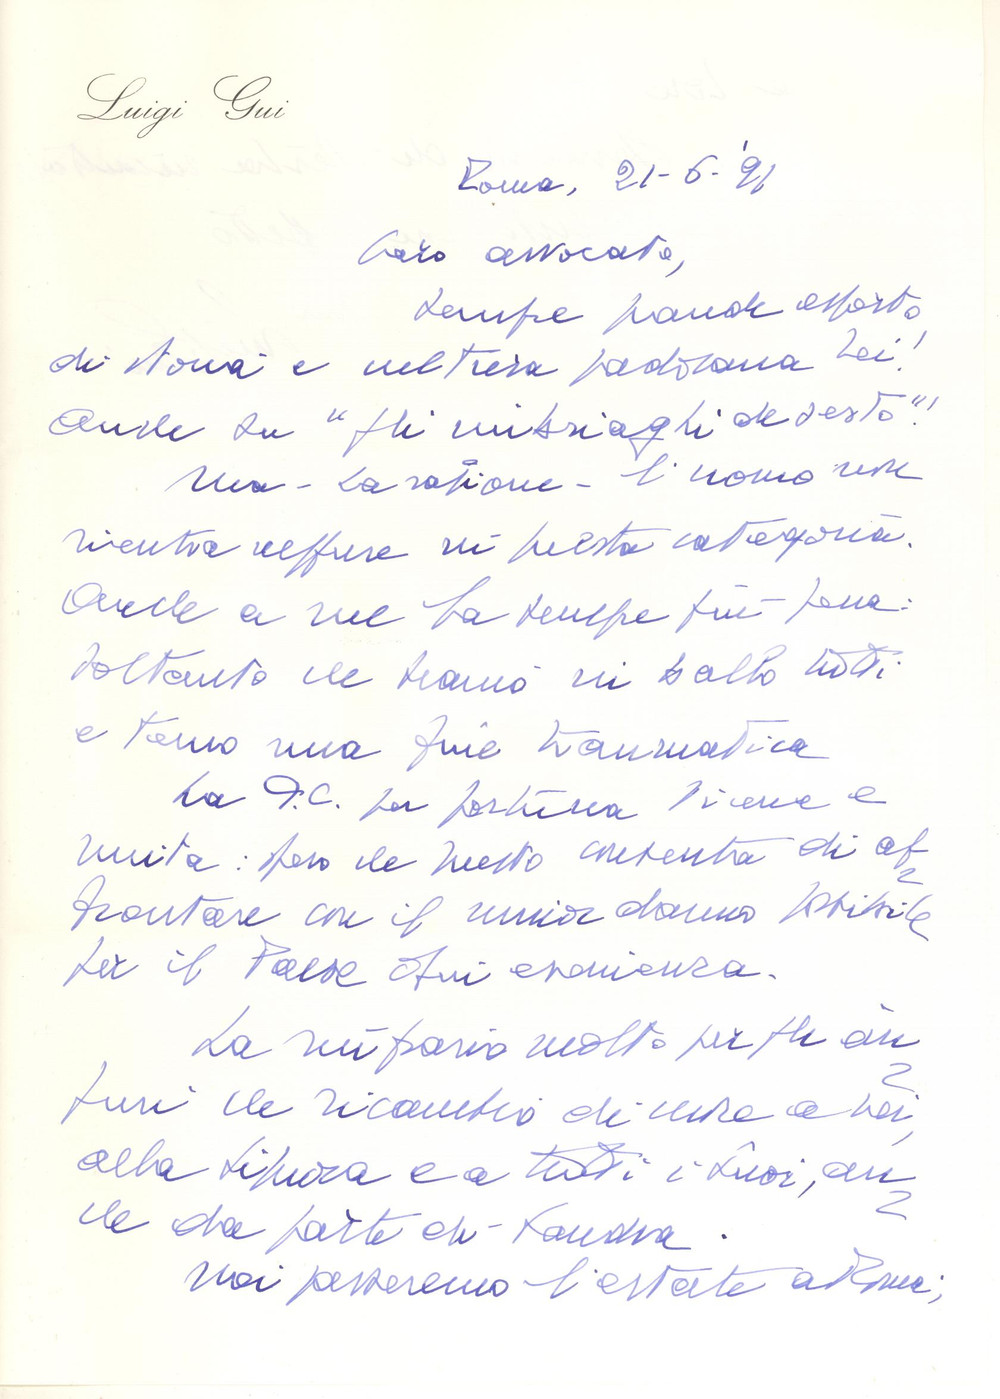 Luigi Gui
Roma, 21-6-'91
Caro avvocato,
sempre grande esperto
di storia e nell'essa padovana Lei!
Anche su "gli imbriaghi de sesto"!
Ma - La ragione - l'uomo non
rientra neppure in questa categoria.
Anche a me fa sempre più pena:
soltanto che siamo in ballo tutti
e temo una fine traumatica
La D.C. per fortuna rimane
unita: spero che questo consenta di af
frontare con il minor danno possibile
per il Paese ogni evenienza.
La ringrazio molto per gli au
guri che ricambio di cuore a Lei,
alla Signora e a tutti i Suoi, an
che da parte di Sandra.
Noi passeremo l'estate a Roma;